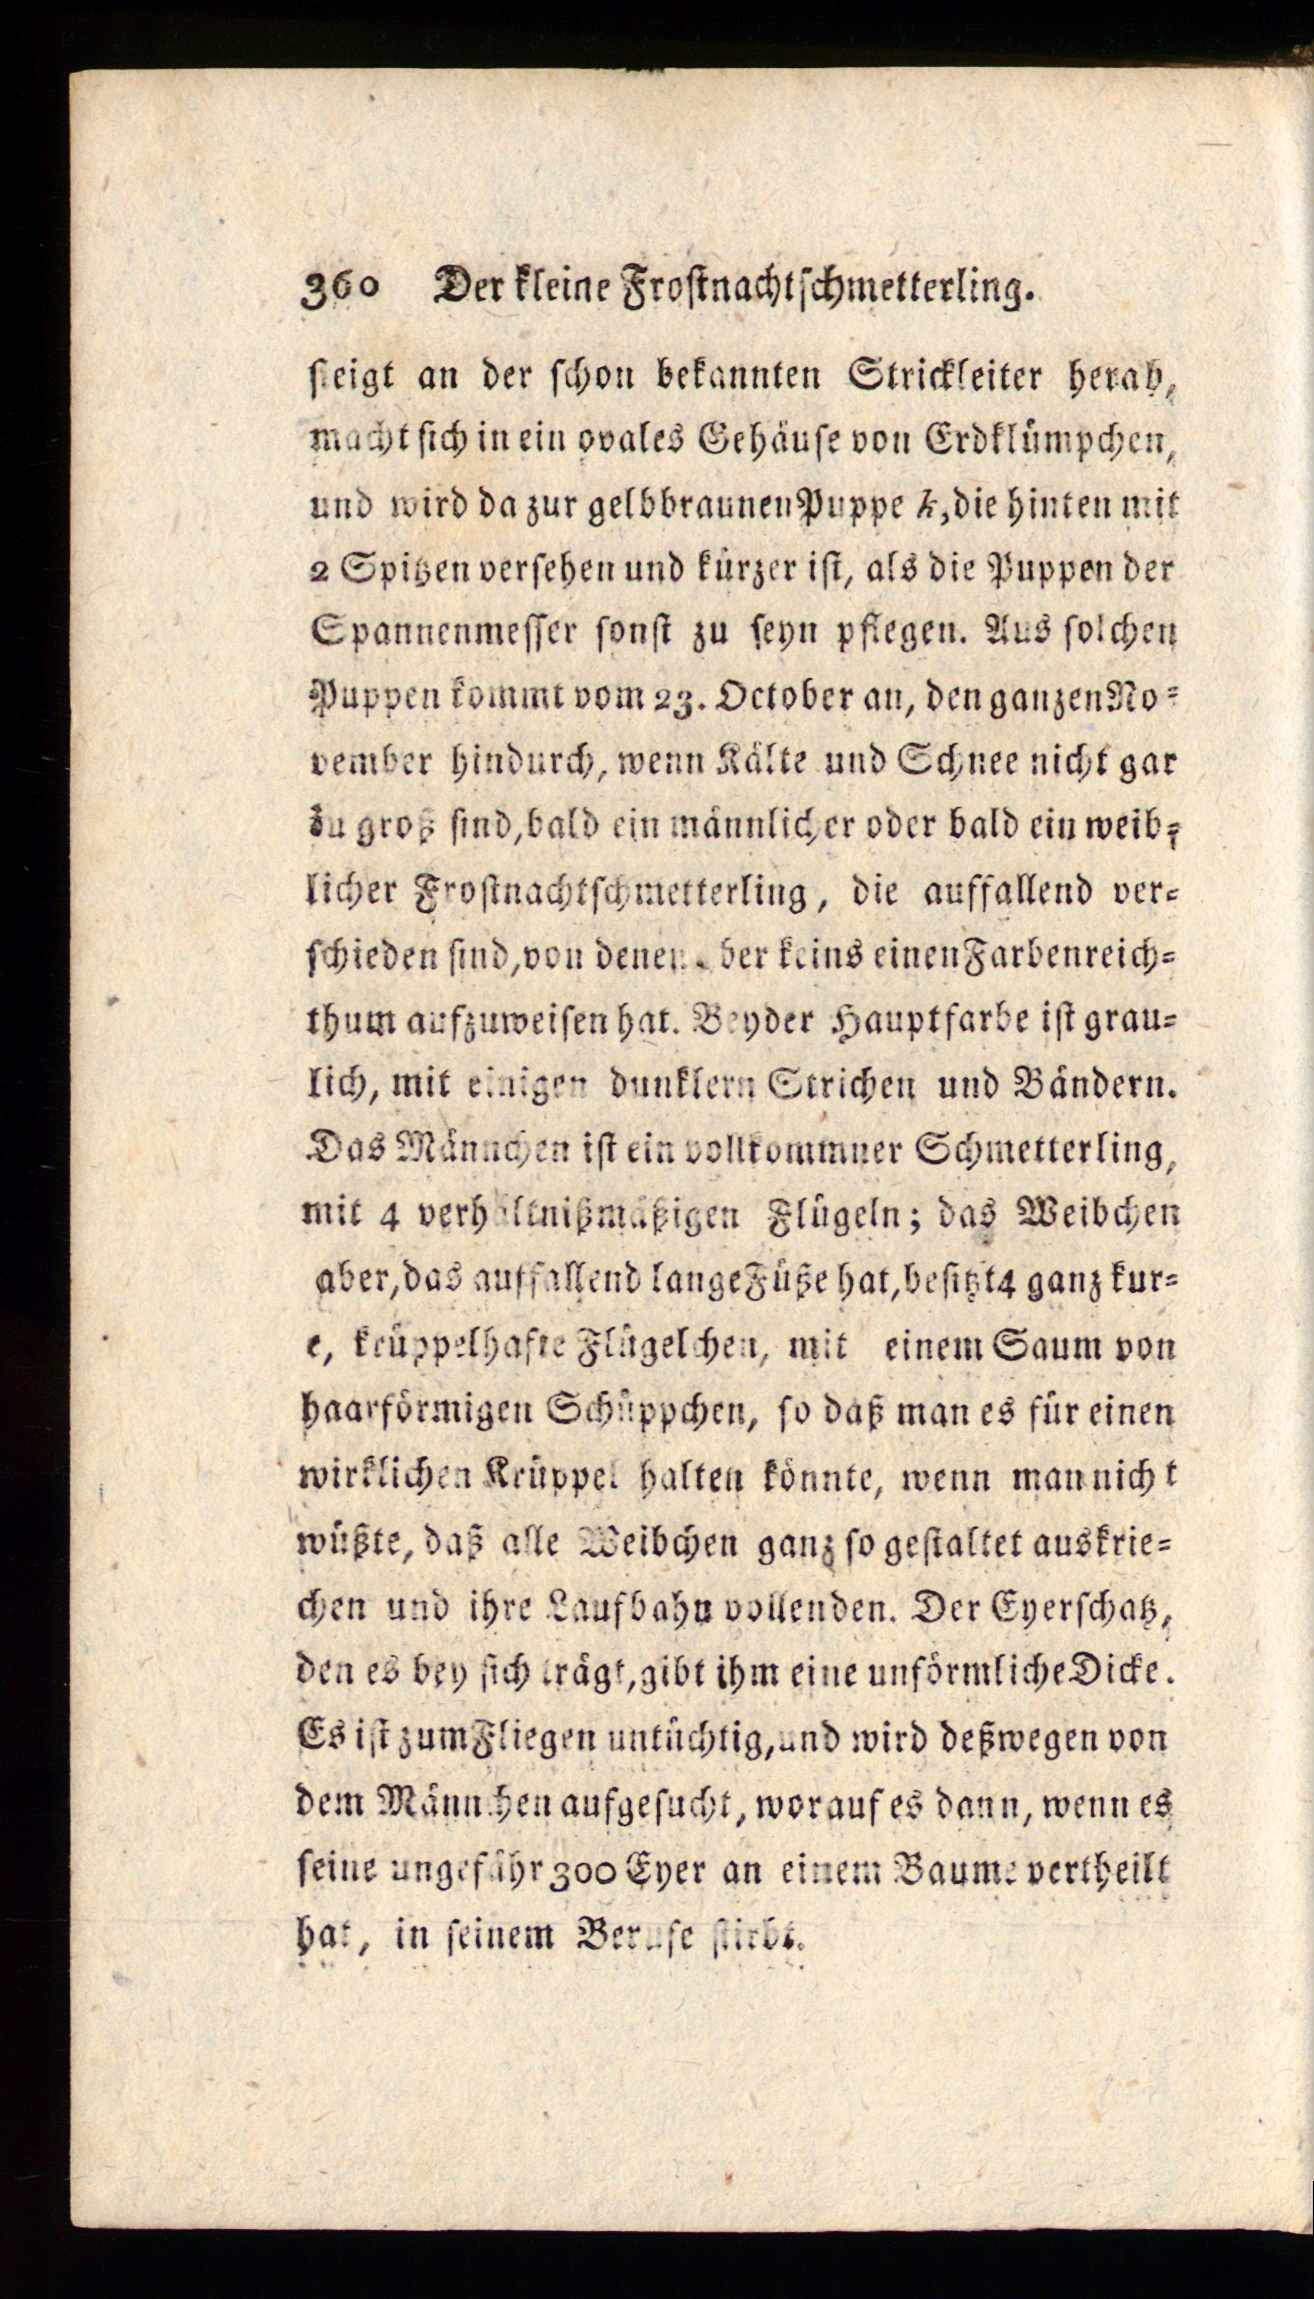 360 Der kleine Frostnachtschmetterling.
steigt an der schon bekannten Strickleiter herab,
macht sich in ein ovales Gehäuse von Erdklümpchen,
und wird da zur gelbbraunen Puppe k, die hinten mit
2 Spitzen versehen und kürzer ist, als die Puppen der
Spannenmesser sonst zu seyn pflegen. Aus solchen
Puppen kommt vom 23. October an, den ganzen No-
vember hindurch, wenn Kälte und Schnee nicht gar
zu groß sind, bald ein männlicher oder bald ein weib-
licher Frostnachtschmetterling, die auffallend ver-
schieden sind, von denen aber keins einen Farbenreich-
thum aufzuweisen hat. Beyder Hauptfarbe ist grau-
lich, mit einigen dunklern Strichen und Bändern.
Das Männchen ist ein vollkommner Schmetterling,
mit 4 verhältnißmäßigen Flügeln; das Weibchen
aber, das auffallend lange Füße hat, besitzt 4 ganz kur-
e, krüppelhafte Flügelchen, mit einem Saum von
haarförmigen Schüppchen, so daß man es für einen
wirklichen Krüppel halten könnte, wenn man nicht
wüßte, daß alle Weibchen ganz so gestaltet auskrie-
chen und ihre Laufbahn vollenden. Der Eyerschatz,
den es bey sich trägt, gibt ihm eine unförmliche Dicke.
Es ist zum Fliegen untüchtig, und wird deßwegen von
dem Männchen aufgesucht, worauf es dann, wenn es
seine ungefähr 300 Eyer an einem Baume vertheilt
hat, in seinem Berufe stirbt.